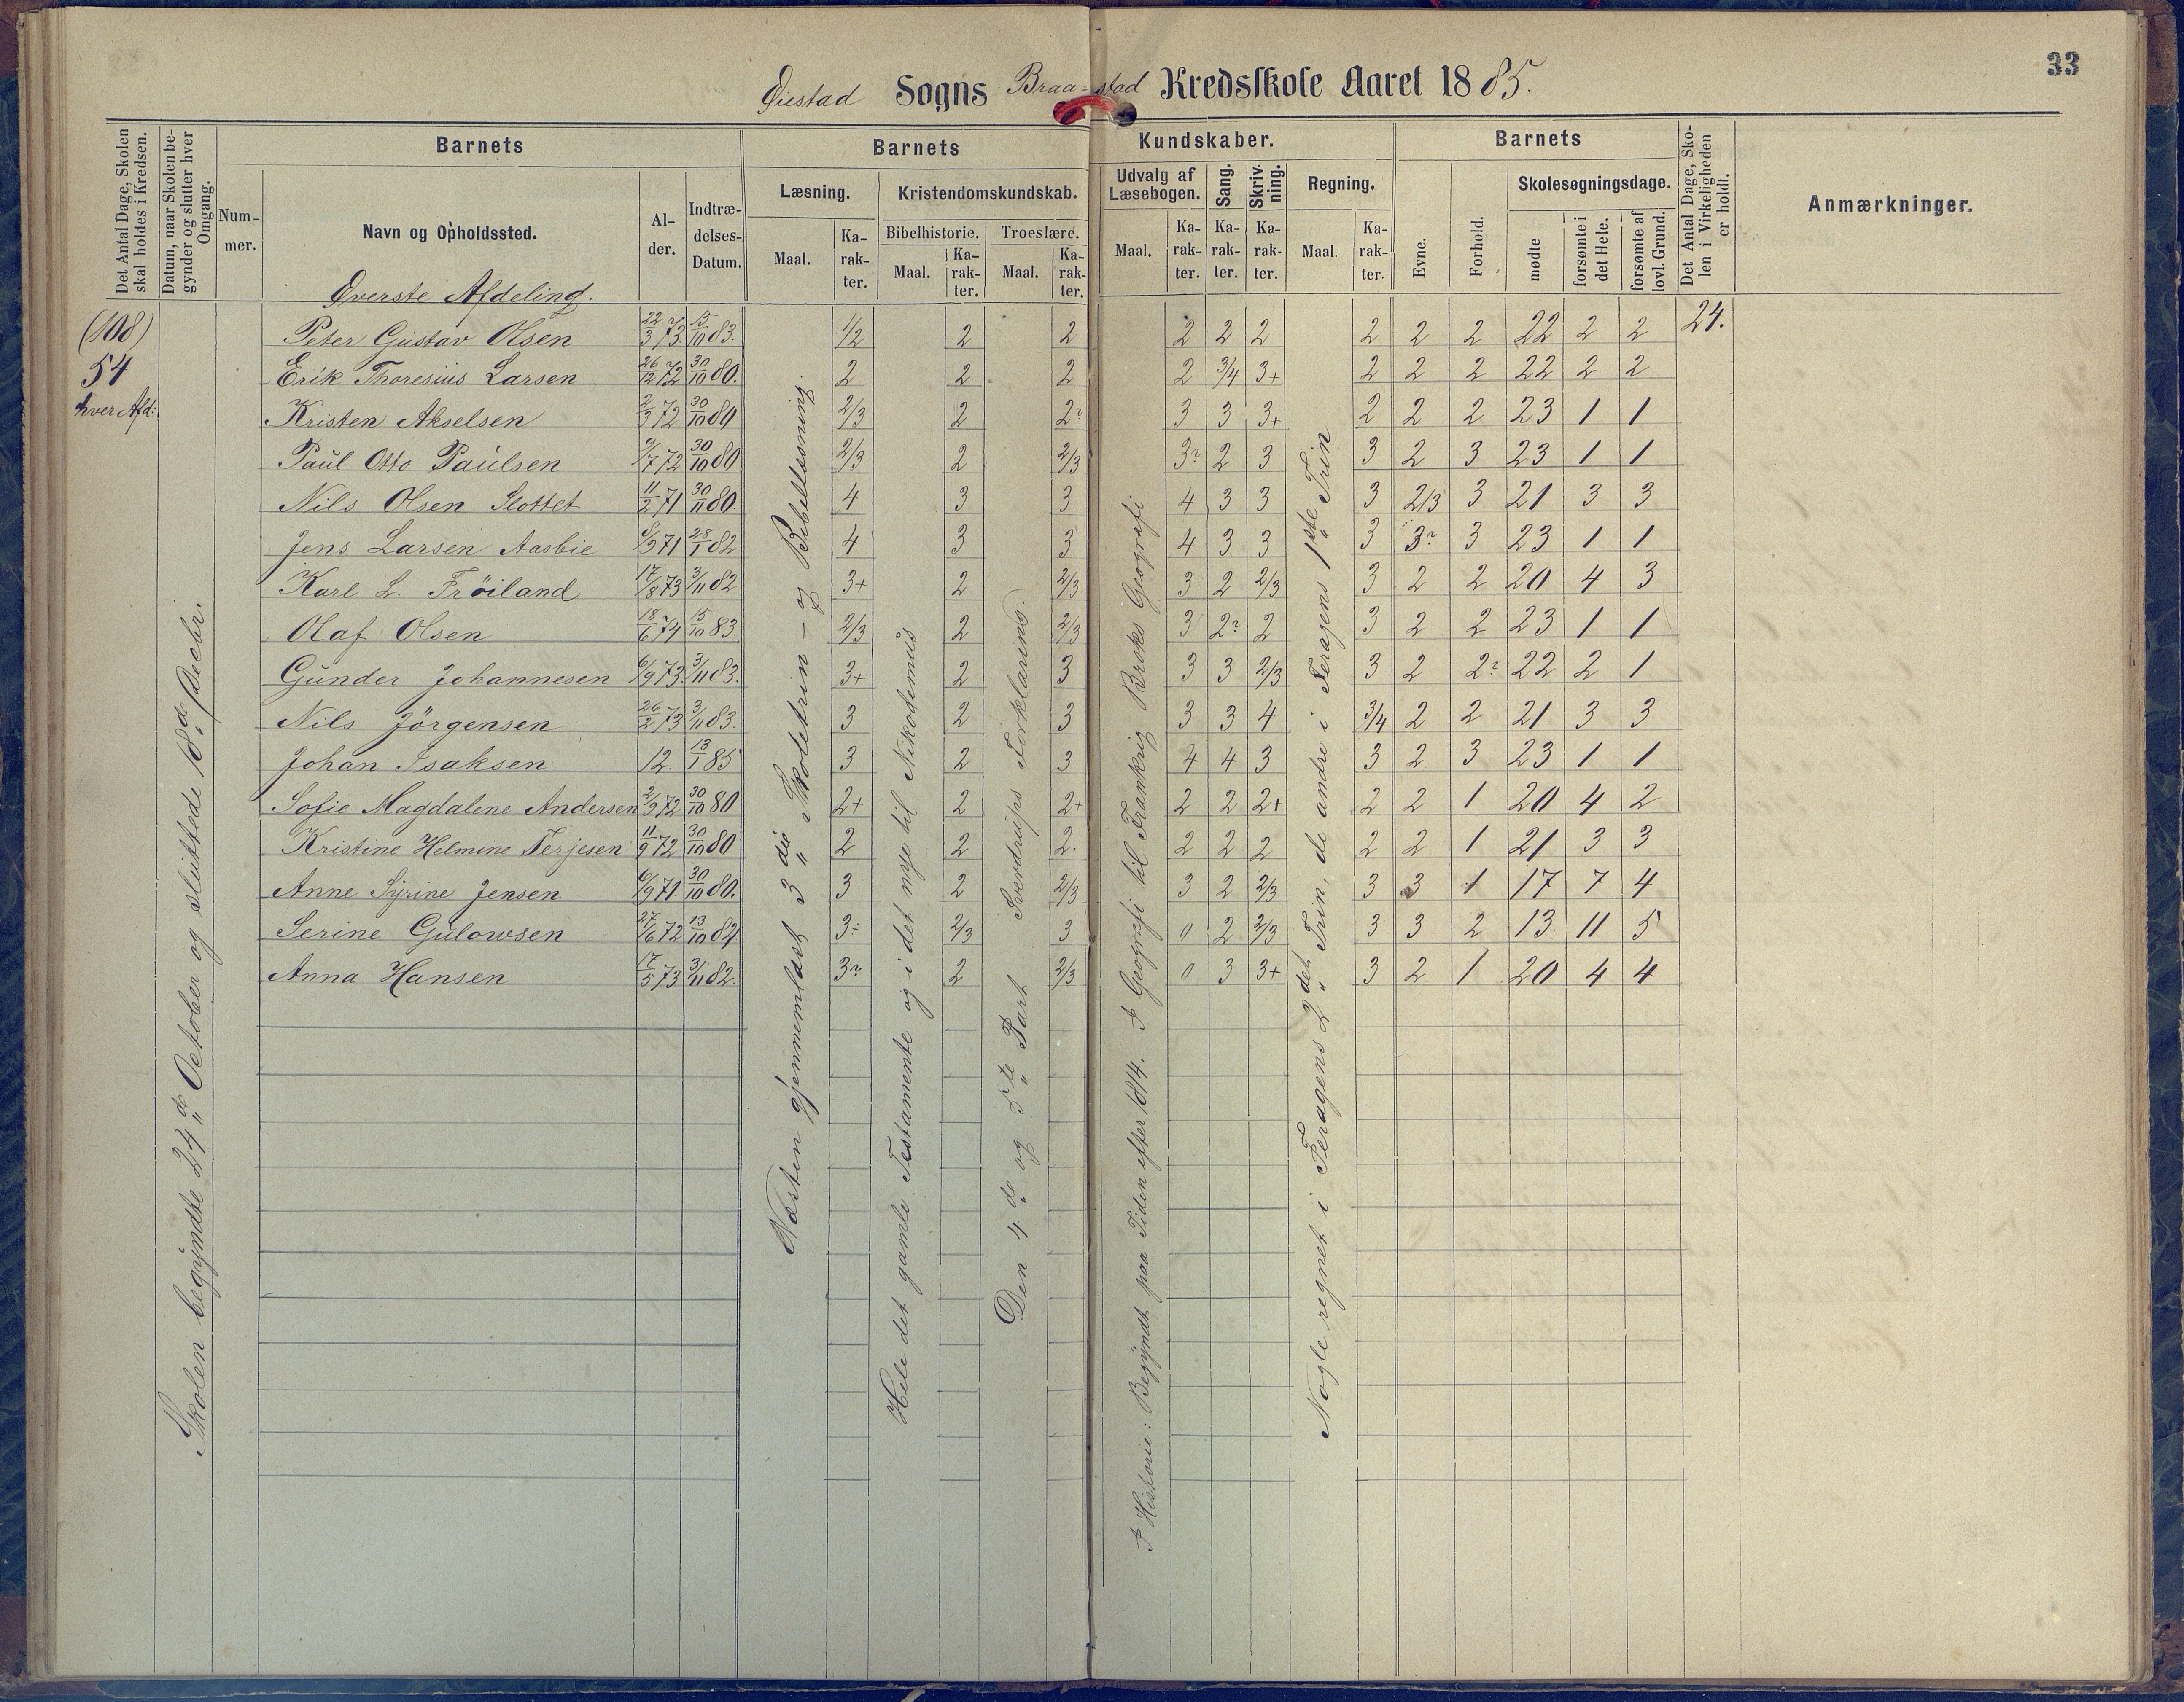 33
Øiestad Sogns Braa-stad Kredsskole Aaret 1885.
Det Antal Dage, Skolen skal holdes i Kredsen.
Datum, naar Skolen begynder og slutter hver Omgang.
Barnets
Nummer.
Navn og Opholdssted.
Alder.
Indtrædelses-Datum.
Barnets Kundskaber.
Læsning.
Maal.
Karakter.
Kristendomskundskab.
Bibelhistorie.
Maal.
Karakter.
Troeslære.
Maal.
Karakter.
Udvalg af Læsebogen.
Maal.
Karakter.
Sang.
Karakter.
Skrivning.
Karakter.
Regning.
Maal.
Karakter.
Barnets
Evne.
Forhold.
Skolesøgningsdage.
mødte
forsømte i det Hele.
forsømte af lovl. Grund.
Det Antal Dage, Skolen i Virkeligheden er holdt.
Anmærkninger.
Øverste Afdeling.
(108)
54
hver Afd:
Peter Gustav Olsen 22/3 73. 15/10 83. 1/2 2 2 2 2 2 2 2 2 22 2 2 24.
Erik Thoresius Larsen 26/12 72 30/10 80. 2 2 2 2 3/4 3+ 2 2 2 22 2 2
Kristen Akselsen 2/3 72 30/10 80 2/3 2 2? 3 3 3+ 2 2 2 23 1 1
Paul Otto Paulsen 9/7 72 30/10 80 2/3 2 2/3 3? 2 3 3 2 3 23 1 1
Nils Olsen Slottet 11/2 71 30/11 80 4 3 3 4 3 3 3 2/3 3 21 3 3
Jens Larsen Aasbie 8/9 71 28/1 82 4 3 3 4 3 3 3 3? 3 23 1 1
Karl L. Frøiland 17/8 73 3/11 82 3+ 2 2/3 3 2 2/3 3 2 2 20 4 3
Olaf Olsen 18/6 74 15/10 83 2/3 2 2/3 3 2? 2 3 2 2 23 1 1
Gunder Johannesen 6/9 73. 3/11 83. 3+ 2 3 3 3 2/3 3 2 2? 22 2 1
Nils Jörgensen 26/2 73 3/11 83. 3 2 3 3 3 4 3/4 2 2 21 3 3
Johan Isaksen 12. 13/1 85 3 2 3 4 4 3 3 2 3 23 1 1
Sofie Magdalene Andersen 2/9 72 30/10 80 2+ 2 2+ 2 2 2+ 2 2 1 20 4 2
Kristine Helmine Terjesen 11/9 72 30/10 80 2 2 2. 2 2 2 2 2 1 21 3 3
Anne Syrine Jensen 6/9 71 30/10 80. 3 2 2/3 3 2 2/3 3 3 1 17 7 4
Serine Gulowsen 27/6 72 13/10 84 3÷ 2/3 3 0 2 2/3 3 3 2 13 11 5
Anna Hansen 17/5 73 3/11 82. 3? 2 2/3 0 3 3+ 3 2 1 20 4 4
Skolen begyndte 24de October og sluttede 18d Decbr.
Næsten gjennemlæst 3die Skoletrin - og Bibellæsning.
Hele det gamle Testamente og i det nye til Nikodemus
Den 4de og 5te Part Sverdrups Forklaring.
I Historie: Begyndt paa Tiden efter 1814. I Geografi til Frankrig Broks Geografi
Nogle regnet i Feragens 2det Trin, de andre i Feragens 1ste Trin